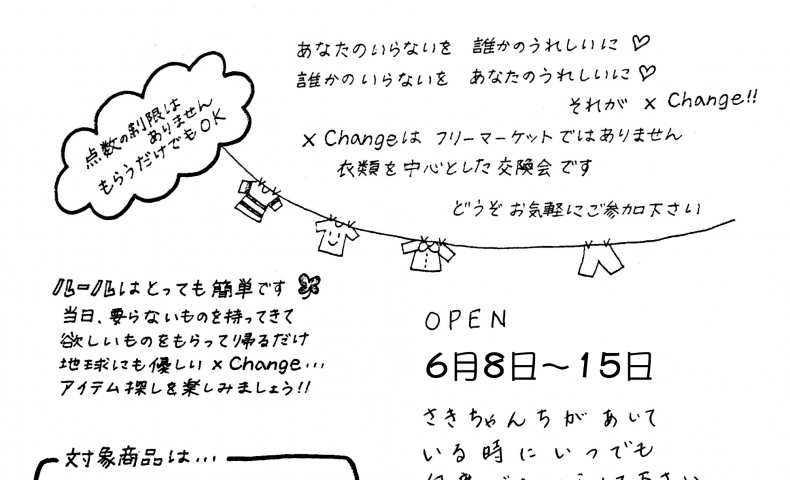 点数の制限は
ありません
もらうだけでもOK
あなたのいらないを 誰かのうれしいに♡
誰かのいらないを あなたのうれしいに♡
それが x Change!!
x Changeは フリーマーケットではありません
衣類を中心とした交換会です
どうぞお気軽にご参加下さい
ルールはとっても簡単です
当日、要らないものを持ってきて
欲しいものをもらって帰るだけ
地球にも優しい x Change…
アイテム探しを楽しみましょう!!
OPEN
6月8日～15日
さきちゃんちがあいて
いる時にいつでも
対象商品は…